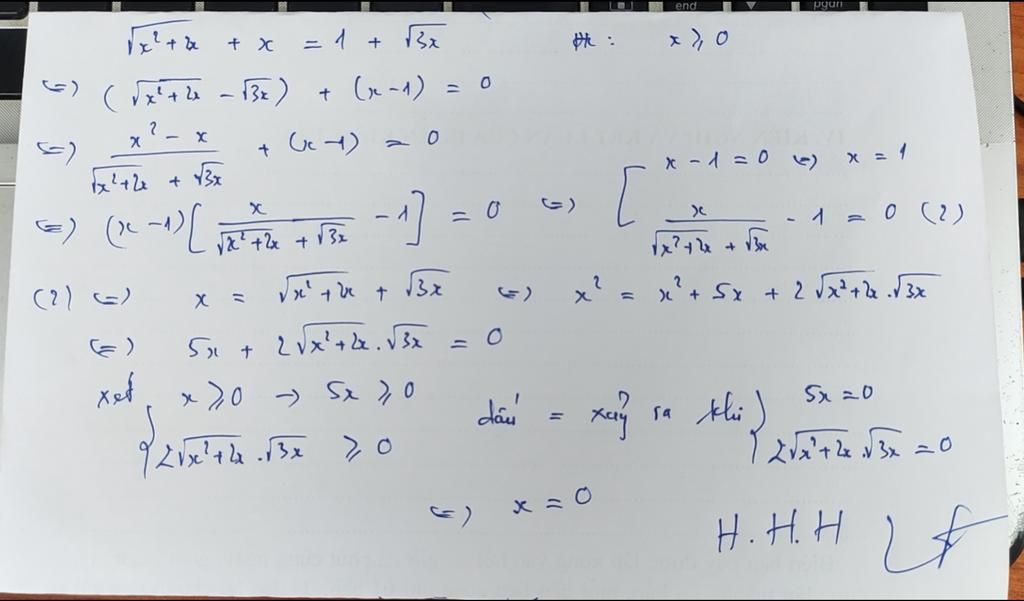 end pgdn
√(x²+2x) + x = 1 + √(3x) đk : x ⩾ 0
⇔ ( √(x²+2x) - √(3x) ) + (x-1) = 0
⇔ (x² - x)/(√(x²+2x) + √(3x)) + (x-1) = 0
⇔ (x-1)[ x/(√(x²+2x) + √(3x)) - 1 ] = 0 ⇔ [ x - 1 = 0 ⇔ x = 1
x/(√(x²+2x) + √(3x)) - 1 = 0 (2)
(2) ⇔ x = √(x²+2x) + √(3x) ⇔ x² = x² + 5x + 2√(x²+2x).√(3x)
⇔ 5x + 2√(x²+2x).√(3x) = 0
xét { x ⩾ 0 → 5x ⩾ 0
2√(x²+2x).√(3x) ⩾ 0
dấu = xảy ra khi { 5x = 0
2√(x²+2x).√(3x) = 0
⇔ x = 0
H.H.H